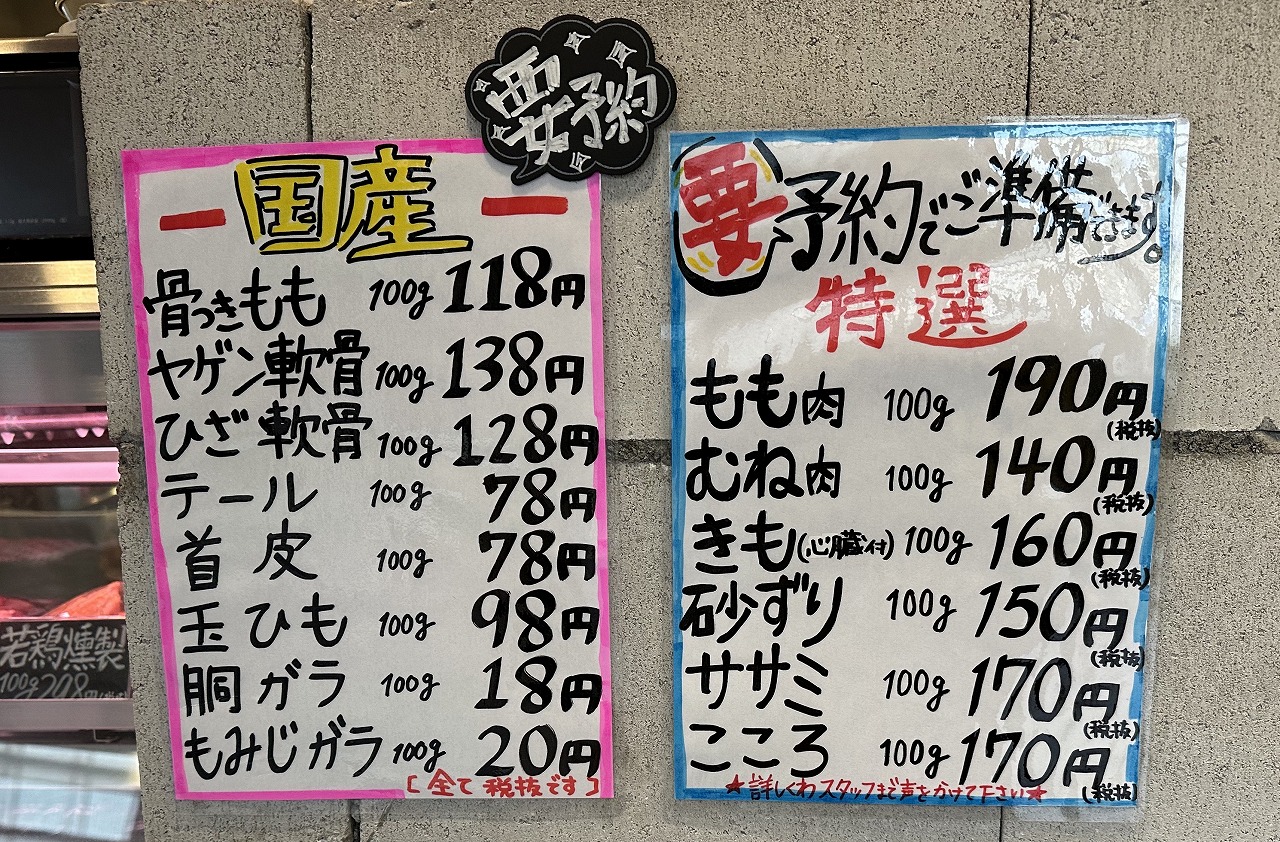 要予約
国産
骨つきもも 100g 118円
ヤゲン軟骨 100g 138円
ひざ軟骨 100g 128円
テール 100g 78円
首皮 100g 78円
玉ひも 100g 98円
胴ガラ 100g 18円
もみじガラ 100g 20円
[全て税抜です]
要予約でご準備できます。
特選
もも肉 100g 190円(税抜)
むね肉 100g 140円(税抜)
きも(心臓付) 100g 160円(税抜)
砂ずり 100g 150円(税抜)
ササミ 100g 170円(税抜)
こころ 100g 170円(税抜)
★詳しくわスタッフまで声をかけて下さい★
若鶏燻製
100g 298円